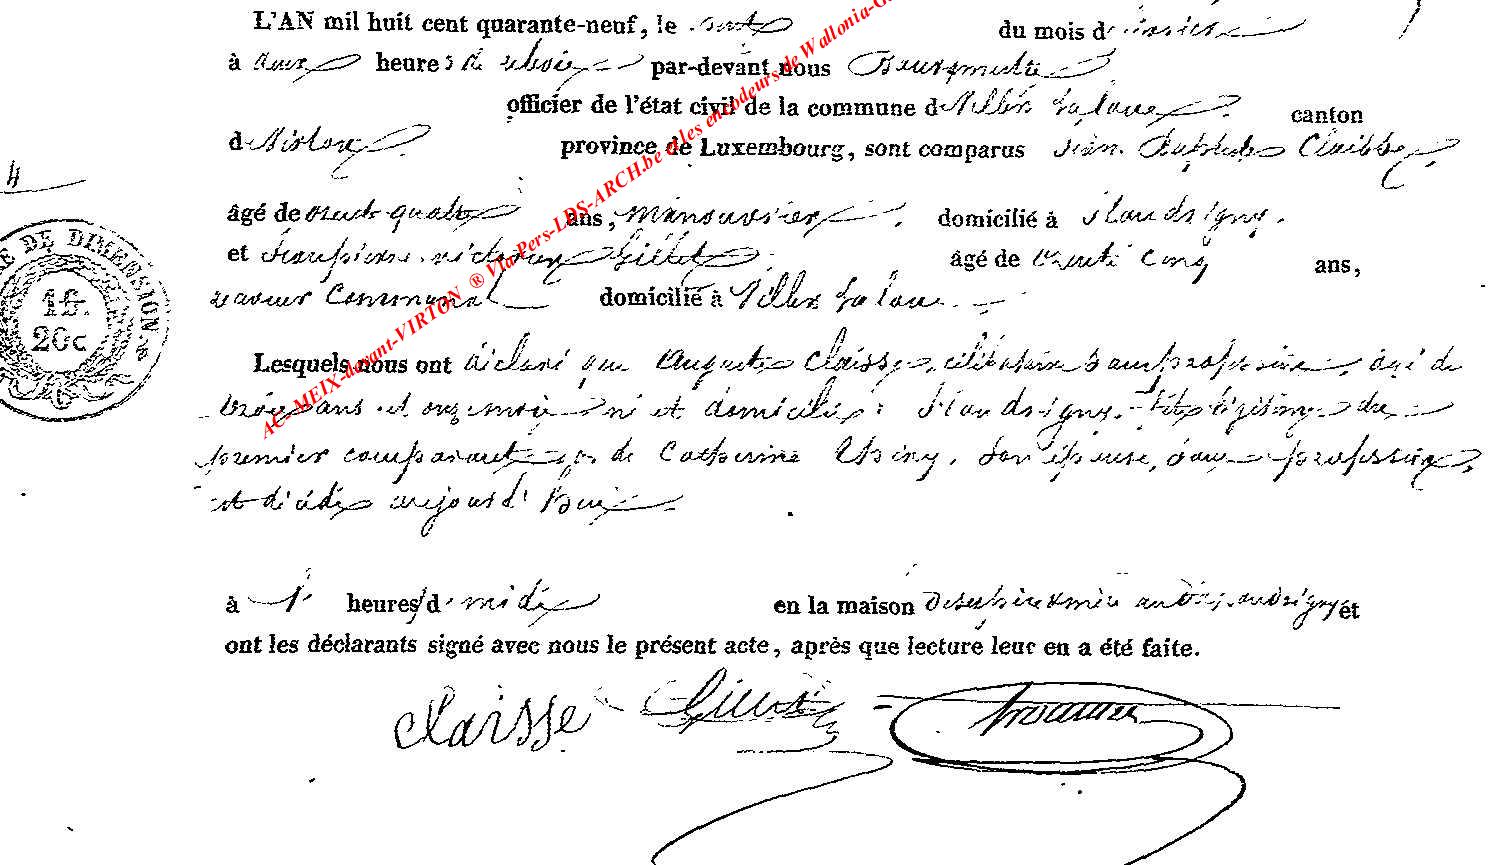 L'AN mil huit cent quarante-neuf, le du mois d
à deux heures de relevée par-devant nous Bourgmestre
officier de l'état civil de la commune de Villers la loue canton
de Virton province de Luxembourg, sont comparus Jean Baptiste Claisse
4
âgé de quatre ans, manouvrier domicilié à
et Jean pierre Gillet âgé de trente Cinq ans,
receveur Communal domicilié à Villers la loue
Lesquels nous ont déclaré que Auguste Claisse, célibataire sans profession, âgé de
trois ans et onze mois né et domicilié à fils légitime du
premier comparant et de Catherine Thiry, Son épouse, sans profession,
et décédé aujourd'hui
à heures de midi en la maison de ses père et mère et
ont les déclarants signé avec nous le présent acte, après que lecture leur en a été faite.
Claisse Gillet
DE DIMENSION
1fr.
20c
AC-MEIX-devant-VIRTON ® Via Pers-LDS-ARCH.be et les encodeurs de Wallonia-G